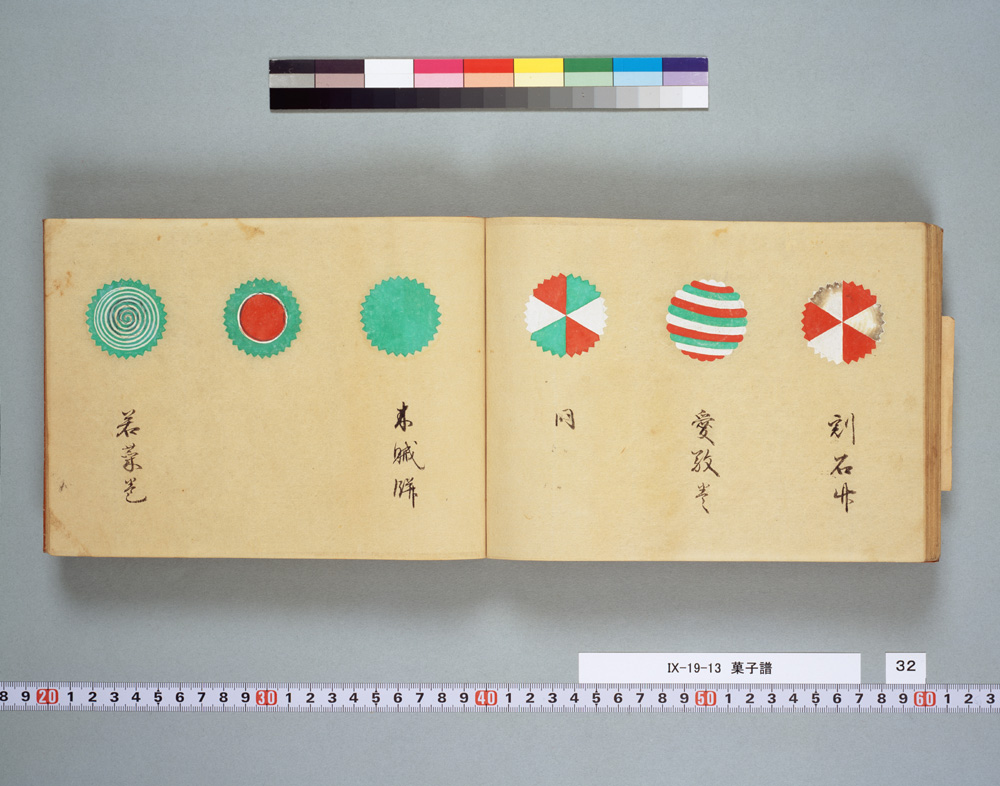 割石竹
愛敬巻
同
木賊餅
若菜巻
IX-19-13 菓子譜
32
8 9 20 1 2 3 4 5 6 7 8 9 30 1 2 3 4 5 6 7 8 9 40 1 2 3 4 5 6 7 8 9 50 1 2 3 4 5 6 7 8 9 60 1 2 3